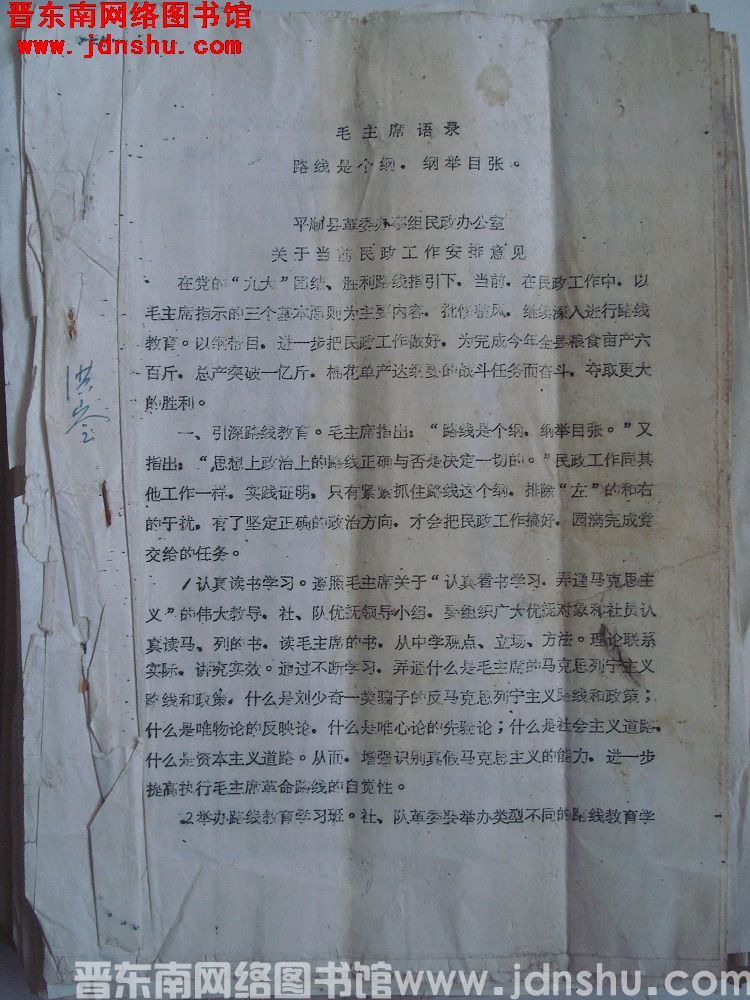 晋东南网络图书馆
www.jdnshu.com
毛主席语录
路线是个纲，纲举目张。
平顺县革委办事组民政办公室
关于当前民政工作安排意见
在党的“九大”团结、胜利路线指引下，当前，在民政工作中，以
毛主席指示的三个基本原则为主要内容，批修整风，继续深入进行路线
教育。以纲带目，进一步把民政工作做好，为完成今年全县粮食亩产六
百斤，总产突破一亿斤，棉花单产达纲要的战斗任务而奋斗，夺取更大
的胜利。
一、引深路线教育。毛主席指出：“路线是个纲，纲举目张。”又
指出：“思想上政治上的路线正确与否是决定一切的。”民政工作同其
他工作一样，实践证明，只有紧紧抓住路线这个纲，排除“左”的和右
的干扰，有了坚定正确的政治方向，才会把民政工作搞好，园满完成党
交给的任务。
1认真读书学习。遵照毛主席关于“认真看书学习，弄通马克思主
义”的伟大教导，社、队优抚领导小组，要组织广大优抚对象和社员认
真读马、列的书，读毛主席的书，从中学观点、立场、方法。理论联系
实际，讲究实效。通过不断学习，弄通什么是毛主席的马克思列宁主义
路线和政策，什么是刘少奇一类骗子的反马克思列宁主义路线和政策；
什么是唯物论的反映论，什么是唯心论的先验论；什么是社会主义道路，
什么是资本主义道路。从而，增强识别真假马克思主义的能力，进一步
提高执行毛主席革命路线的自觉性。
2举办路线教育学习班。社、队革委要举办类型不同的路线教育学
晋东南网络图书馆www.jdnshu.com